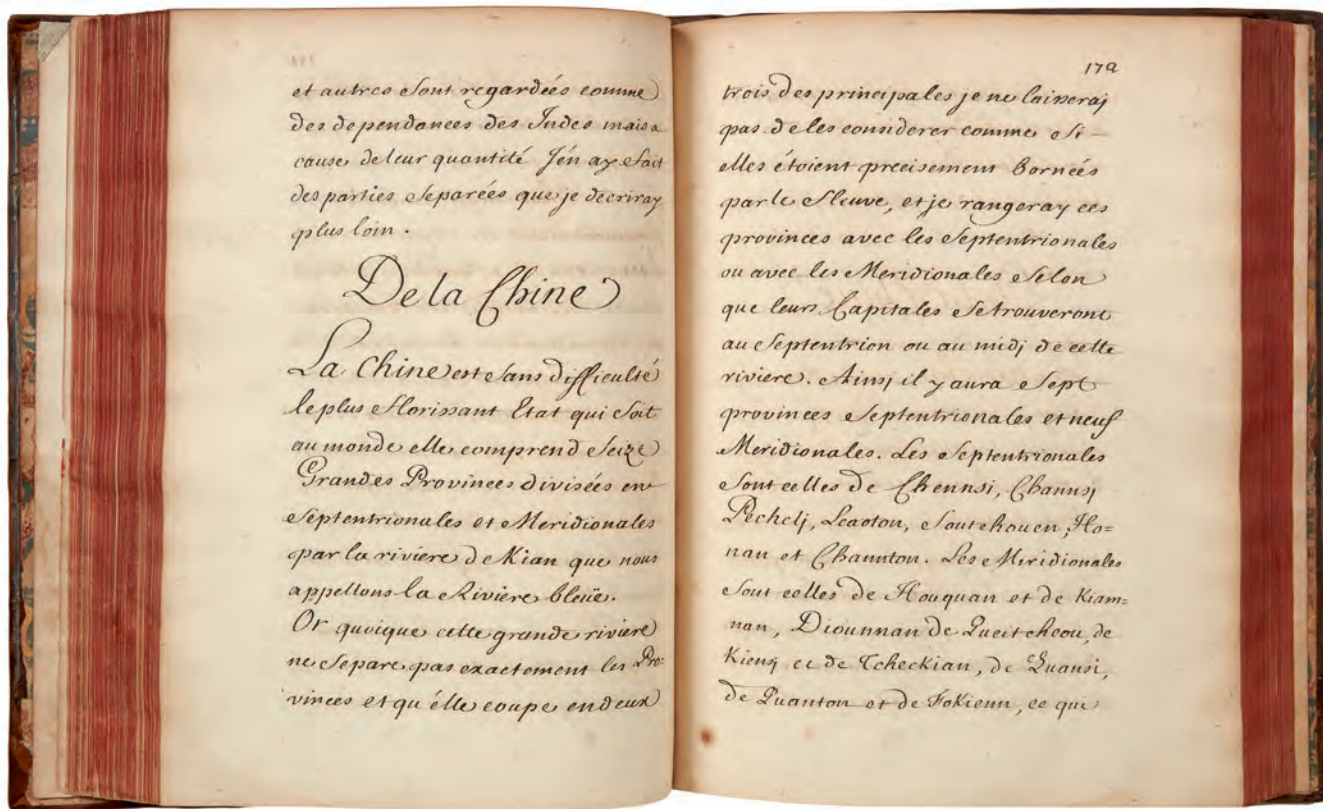 et autres sont regardées comme
des dependances des Indes mais a
cause de leur quantité J'én ay fait
des parties separées que je decriray
plus loin.
De la Chine
La Chine est sans difficulté
le plus florissant Etat qui soit
au monde elle comprend seize
Grandes Provinces divisées en
septentrionales et Meridionales
par la riviere de Kian que nous
appellons la Riviere bleüe.
Or quoique cette grande riviere
ne separe pas exactement les Pro=
vinces et qu'élle coupe en deux
172
trois des principales je ne laisseraj
pas de les considerer comme si
elles étoient precisement Bornées
par le fleuve, et je rangeray ces
provinces avec les septentrionales
ou avec les Meridionales selon
que leurs Capitales se trouveront
au septentrion ou au midj de cette
riviere. Ainsj il y aura sept
provinces septentrionales et neuf
Meridionales. Les septentrionales
sont celles de Chennsi, Channsj
Pechelj, Leaoton, soutchouen, Ho=
nan et Channton. Les Meridionales
sont celles de Houquan et de Kiam=
nan, Diounnan de Queitcheou, de
Kiensj et de Tcheckian, de Quansi,
de Quanton et de Fokienn, ce qui